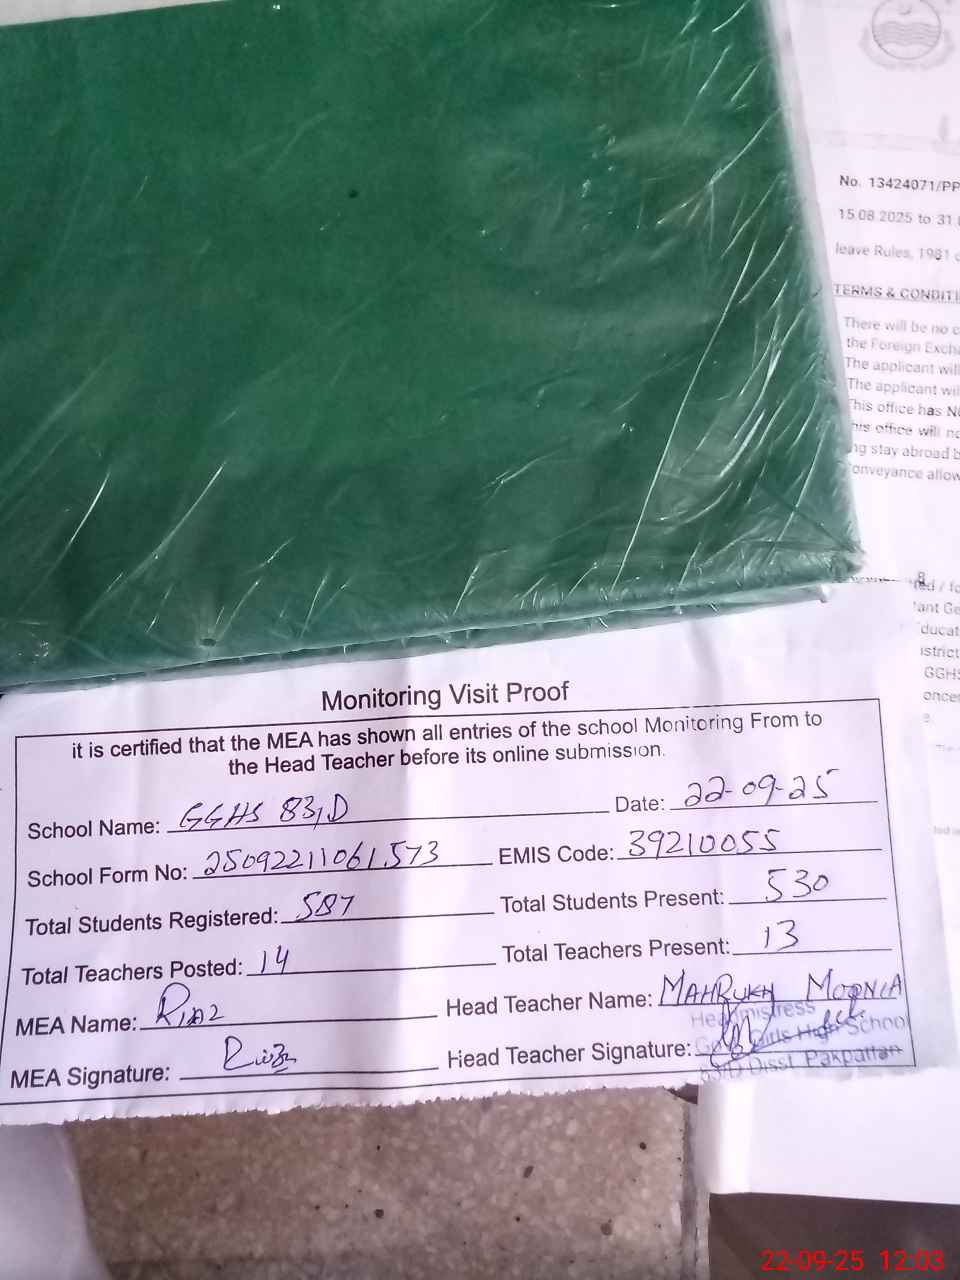 No. 13424071/PP
15.08.2025 to 31.
leave Rules, 1981
TERMS & CONDITI
There will be no c
the Foreign Exch
The applicant will
The applicant wil
This office has N
his office will no
ng stay abroad b
onveyance allow
ant Ge
ducat
istrict
GGHS
oncer
Monitoring Visit Proof
it is certified that the MEA has shown all entries of the school Monitoring From to
the Head Teacher before its online submission.
School Name: GGHS 83/D Date: 22-09-25
School Form No: 25092211061573 EMIS Code: 39210055
Total Students Registered: 587 Total Students Present: 530
Total Teachers Posted: 14 Total Teachers Present: 13
MEA Name: Riaz Head Teacher Name: MAHRUKH MOONIA
MEA Signature: Riaz Head Teacher Signature:
Headmistress
Govt Girls High School
83/D Disst Pakpattan
22-09-25 12:03